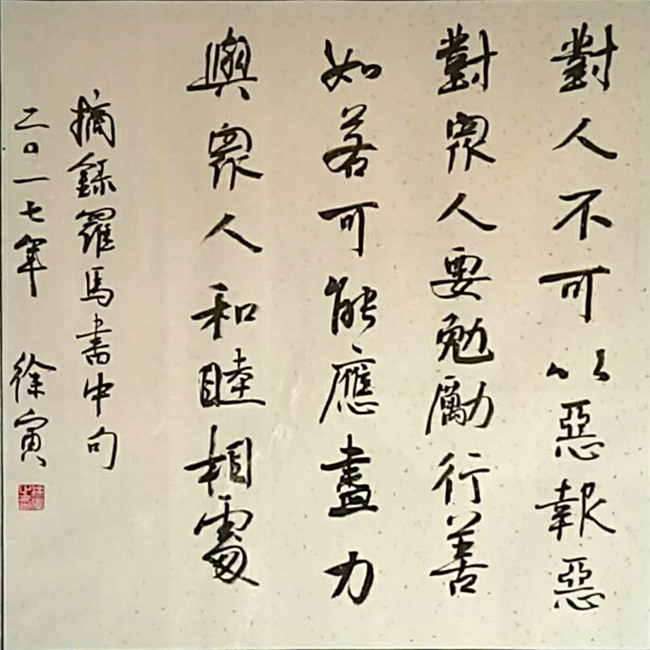 對人不可以惡報惡
對衆人要勉勵行善
如若可能應盡力
與衆人和睦相處
摘錄羅馬書中句
二〇一七年 徐寅